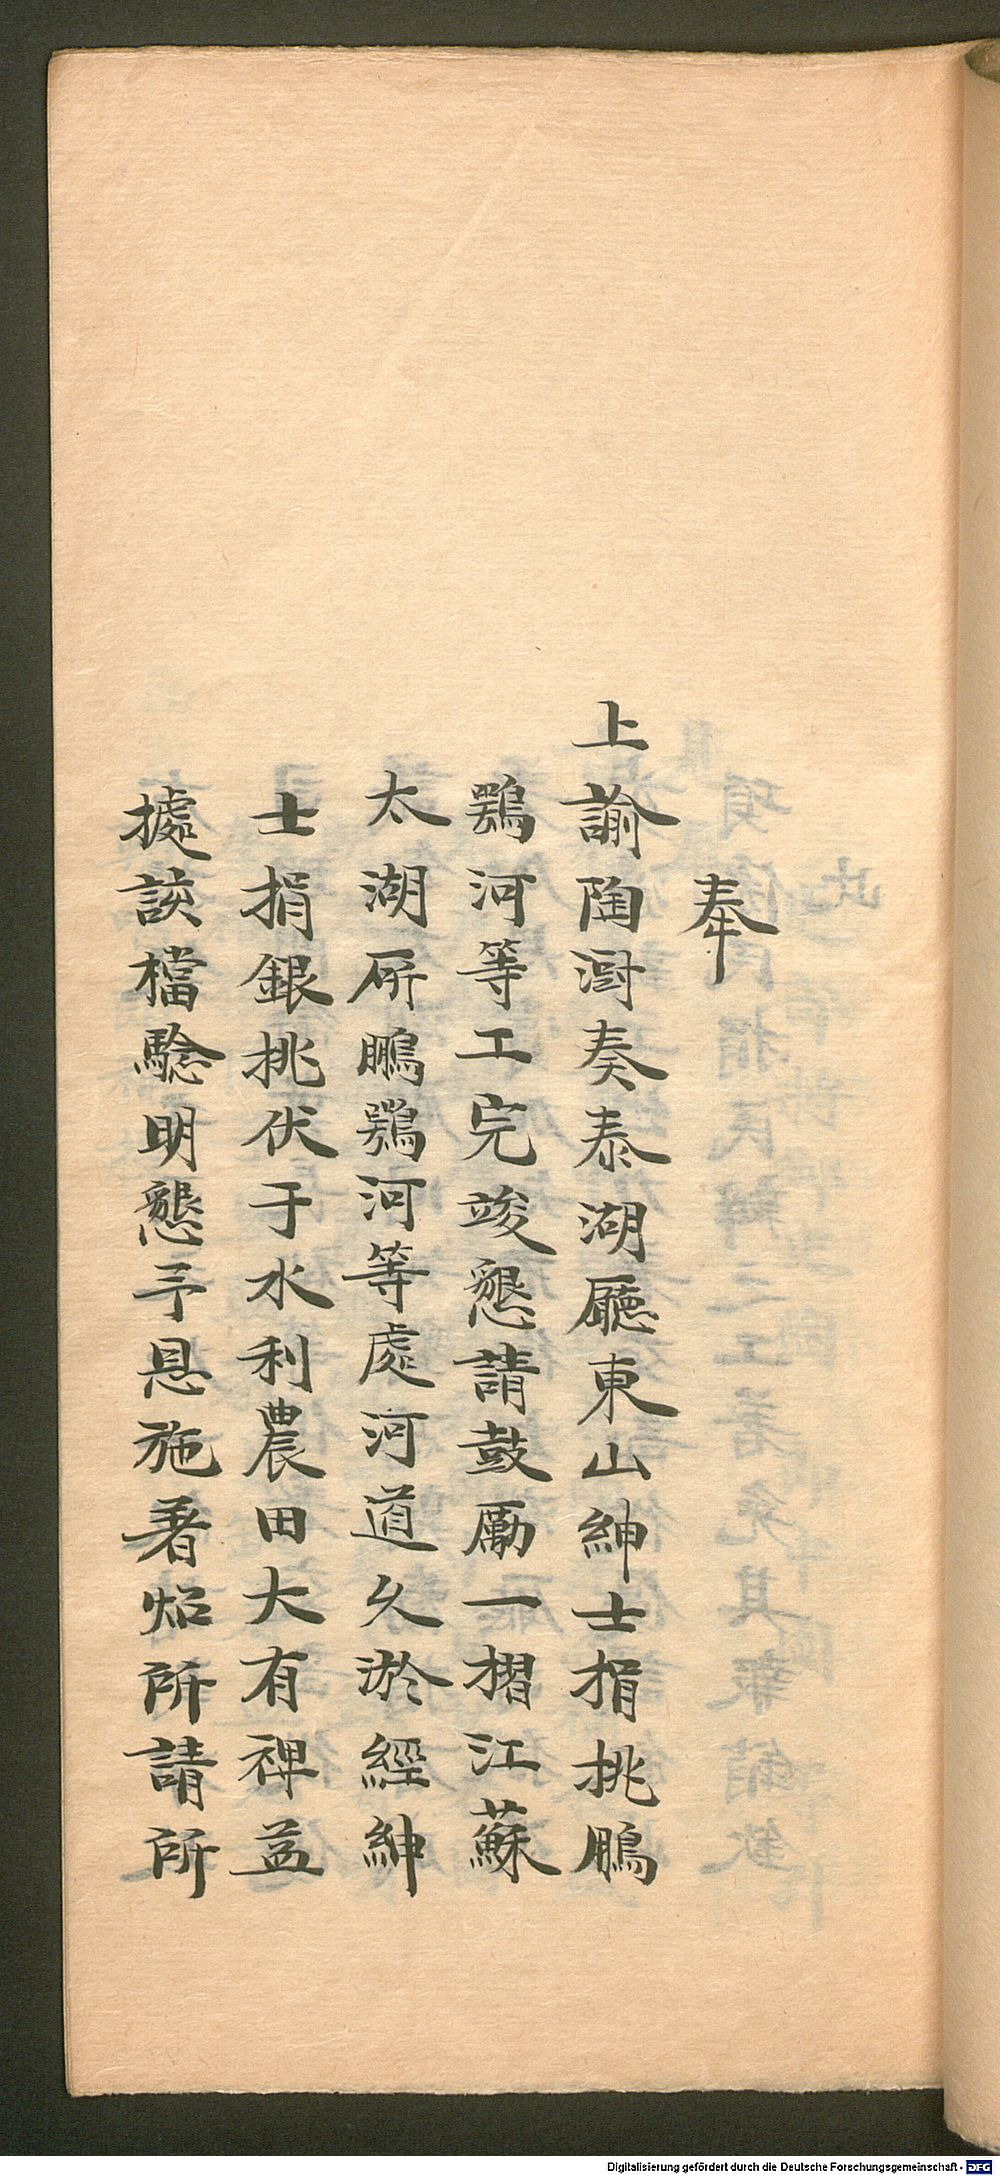 奉
上諭陶澍奏泰湖廳東山紳士捐挑鵬
鶚河等工完竣懇請鼓勵一摺江蘇
太湖所鵬鶚河等處河道久淤經紳
士捐銀挑伏于水利農田大有裨益
據該檔驗明懇予恩施著炤所請所
Digitalisierung gefördert durch die Deutsche Forschungsgemeinschaft - DFG